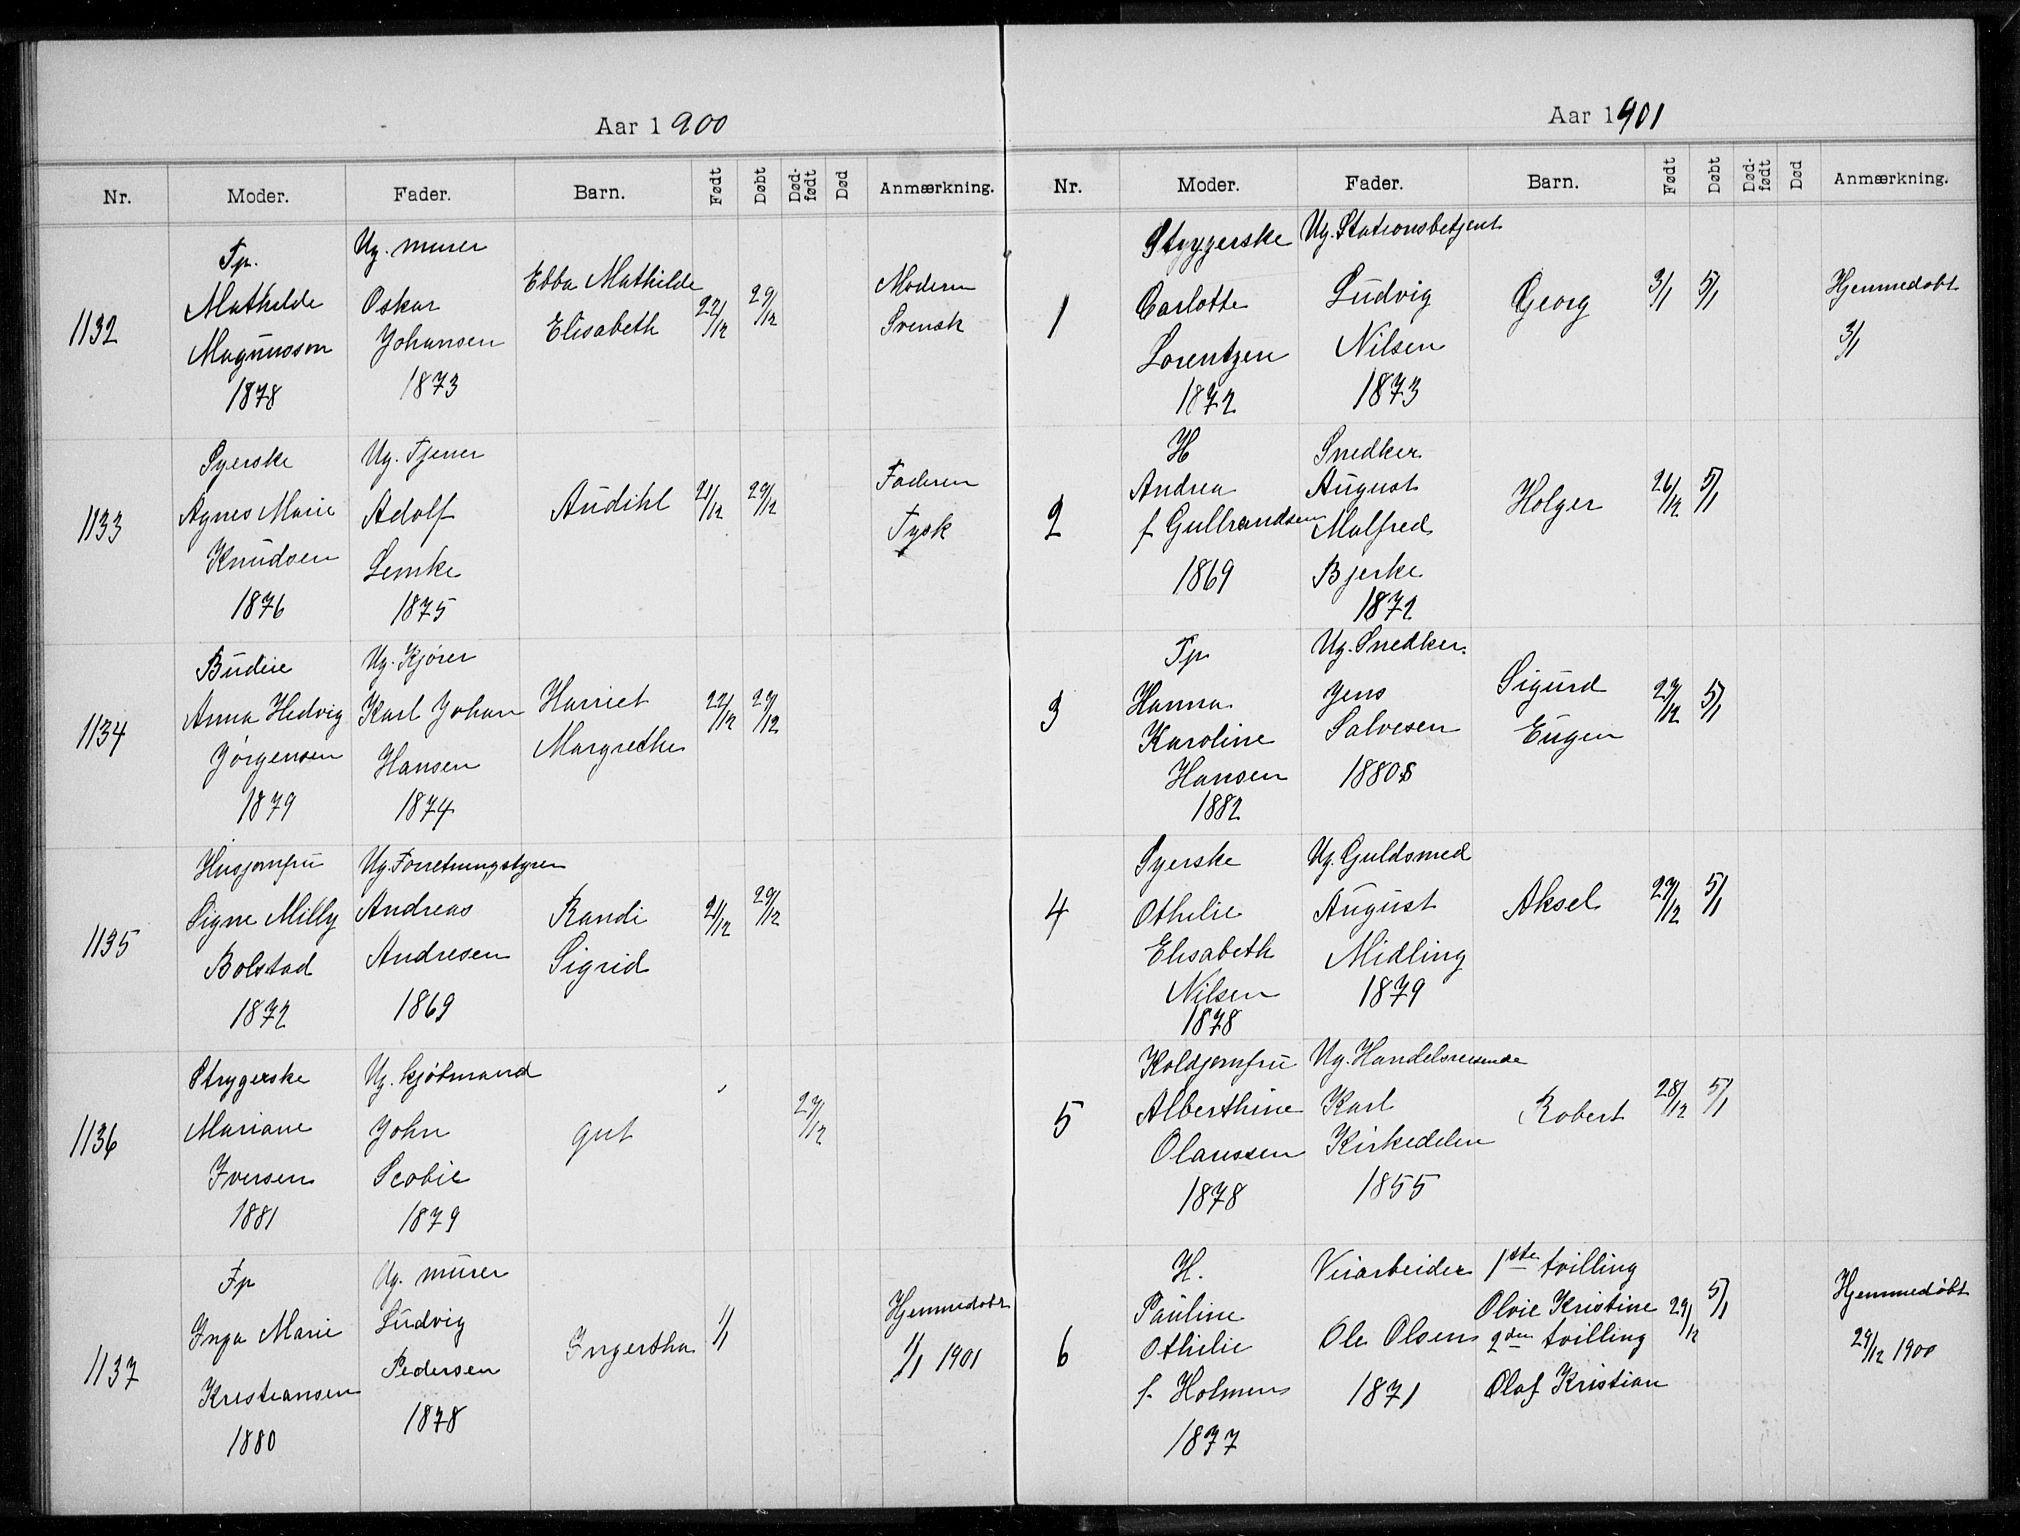 Aar 1900
Nr. Moder. Fader. Barn. Født Døbt Død-født Død Anmærkning.
1132
Tp.
Mathilde
Magnusson
1878
Ug. murer
Oskar
Johansen
1873
Ebba Mathilde
Elisabeth
22/12 29/12
Moderen
Svensk
1133
Syerske
Agnes Marie
Knudsen
1876
Ug. Tjener
Adolf
Lemke
1875
Audihl
21/12 29/12
Faderen
Tysk
1134
Budeie
Anna Hedvig
Jørgensen
1879
Ug. Kjører
Karl Johan
Hansen
1874
Harriet
Margrethe
22/12 29/12
1135
Husjomfru
Signe Milly
Bolstad
1872
Ug. Forretningstyrer
Andreas
Andresen
1869
Randi
Sigrid
21/12 29/12
1136
Strygerske
Mariane
Iversen
1881
Ug. kjøbmand
John
Scobie
1879
gut
27/12
1137
Tp
Inga Marie
Kristiansen
1880
Ug. murer
Ludvig
Pedersen
1878
Ingertha
1/1
Hjemmedøbt
1/1 1901
Aar 1901
Nr. Moder. Fader. Barn. Født Døbt Død-født Død Anmærkning.
1
Strygerske
Carlotte
Lorentzen
1872
Ug. Stationsbetjent
Ludvig
Nilsen
1873
Georg
3/1 5/1
Hjemmedøbt
3/1
2
H
Andrea
f Gulbrandsen
1869
Snedker
August
Malfred
Bjerke
1872
Holger
26/12 5/1
3
Tp
Hanna
Karoline
Hansen
1882
Ug. Snedker.
Jens
Salvesen
1880
Sigurd
Eugen
29/12 5/1
4
Syerske
Othilie
Elisabeth
Nilsen
1878
Ug. Guldsmed
August
Midling
1879
Aksel
27/12 5/1
5
Koldjomfru
Alberthine
Olaussen
1878
Ug. Handelsreisende
Karl
Kirkedelen
1855
Robert
28/12 5/1
6
H.
Pauline
Othilie
f. Holmen
1877
Veiarbeider
Ole Olsen
1871
1ste tvilling
Olvie Kristine
2den tvilling
Olaf Kristian
29/12 5/1
Hjemmedøbt
29/12 1900